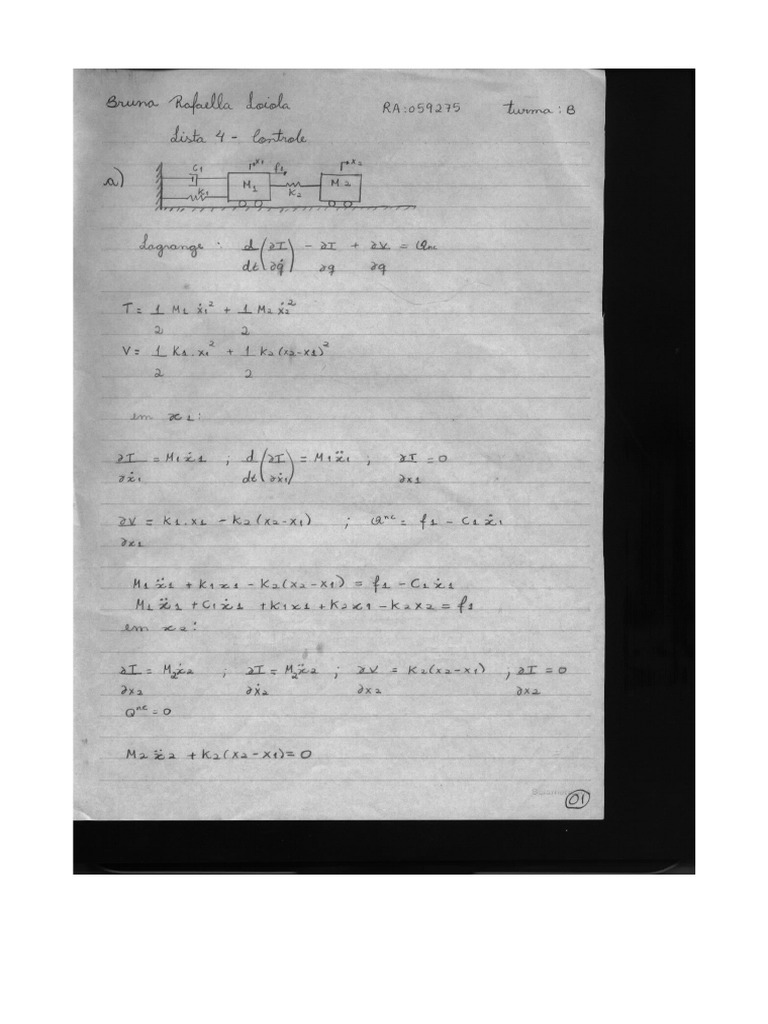 Bruna Rafaella Loiola RA:059275 turma: B
Lista 4 - Controle
a) C1 K1 M1 x1 f1 K2 M2 x2
Lagrange: d/dt(∂T/∂q̇) - ∂T/∂q + ∂V/∂q = Qnc
T = 1/2 M1 ẋ1² + 1/2 M2 ẋ2²
V = 1/2 K1.x1² + 1/2 K2(x2-x1)²
∂T/∂ẋ1 = M1ẋ1 ; d/dt(∂T/∂ẋ1) = M1ẍ1 ; ∂T/∂x1 = 0
∂V/∂x1 = K1.x1 - K2(x2-x1) ; Qnc = f1 - C1ẋ1
M1ẍ1 + K1x1 - K2(x2-x1) = f1 - C1ẋ1
M1ẍ1 + C1ẋ1 + K1x1 + K2x1 - K2x2 = f1
em x2:
∂T/∂x2 = M2ẋ2 ; ∂T/∂ẋ2 = M2ẍ2 ; ∂V/∂x2 = K2(x2-x1) ; ∂T/∂x2 = 0
Qnc = 0
M2ẍ2 + K2(x2-x1) = 0
01